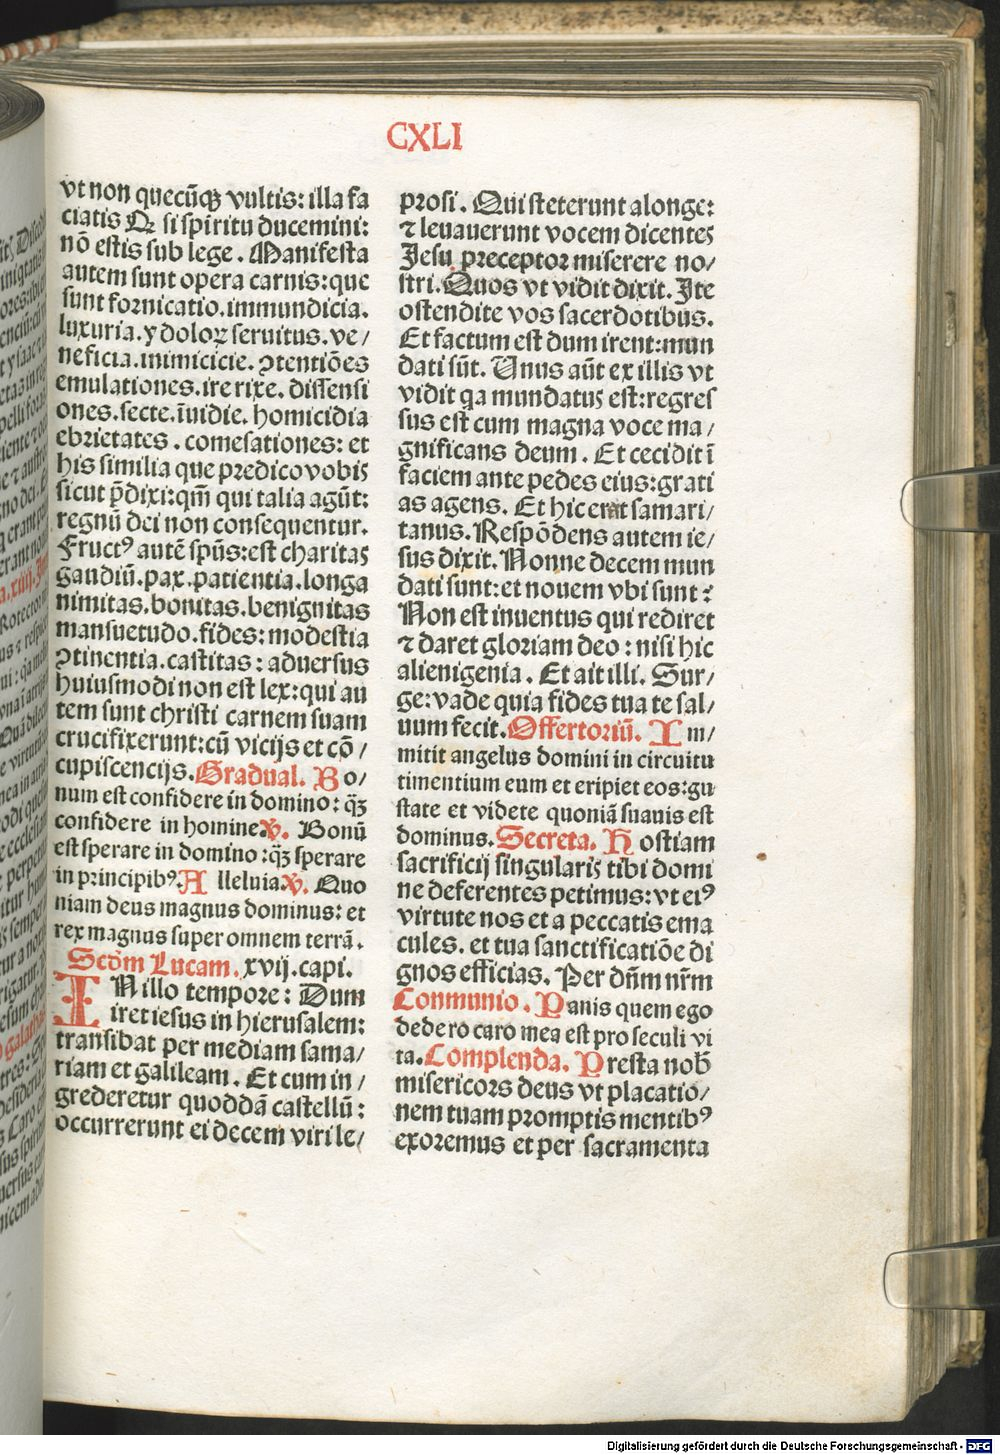 CXLI
vt non quecūqꝫ vultis: illa fa
ciatis Ꝙ si spiritu ducemini:
nō estis sub lege. Manifesta
autem sunt opera carnis: que
sunt fornicatio. immundicia.
luxuria. ydoloꝝ seruitus. ve/
neficia. inimicicie. ꝯtentiōes
emulationes. ire rixe. dissensi
ones. secte. īuidie. homicidia
ebrietates. comesationes: et
his similia que predico vobis
sicut p̄dixi: qm̄ qui talia agūt:
regnū dei non consequentur.
Fructꝰ autē spūs: est charitas
gaudiū. pax. patientia. longa
nimitas. bonitas. benignitas
mansuetudo. fides: modestia
ꝯtinentia. castitas: aduersus
huiusmodi non est lex: qui au
tem sunt christi carnem suam
crucifixerunt: cū vicijs et cō/
cupiscencijs. Gradual. Bo/
num est confidere in domino: qꝫ
confidere in homine. ℣. Bonū
est sperare in domino: qꝫ sperare
in principibꝰ. Alleluia. ℣. Quo
niam deus magnus dominus: et
rex magnus super omnem terrā.
Scd̄m Lucam. xvij. capi.
IN illo tempore: Dum
iret iesus in hierusalem:
transibat per mediam sama/
riam et galileam. Et cum in/
grederetur quoddā castellū:
occurrerunt ei decem viri le/
prosi. Qui steterunt a longe:
⁊ leuauerunt vocem dicentes
Jesu preceptor miserere no/
stri. Quos vt vidit dixit. Ite
ostendite vos sacerdotibus.
Et factum est dum irent: mun
dati sūt. Unus aūt ex illis vt
vidit qa mundatus est: regres
sus est cum magna voce ma/
gnificans deum. Et cecidit ī
faciem ante pedes eius: grati
as agens. Et hic erat samari/
tanus. Respōdens autem ie/
sus dixit. Nonne decem mun
dati sunt: et nouem vbi sunt?
Non est inuentus qui rediret
⁊ daret gloriam deo: nisi hic
alienigenia. Et ait illi. Sur/
ge: vade quia fides tua te sal/
uum fecit. Offertoriū. Im/
mitit angelus domini in circuitu
timentium eum et eripiet eos: gu
state et videte quoniā suauis est
dominus. Secreta. Hostiam
sacrificij singularis tibi domi
ne deferentes petimus: vt eiꝰ
virtute nos et a peccatis ema
cules. et tua sanctificatiōe di
gnos efficias. Per dn̄m nr̄m
Conmunio. Panis quem ego
dedero caro mea est pro seculi vi
ta. Complenda. Presta nob̄
misericors deus vt placatio/
nem tuam promptis mentibꝰ
exoremus et per sacramenta
Digitalisierung gefördert durch die Deutsche Forschungsgemeinschaft - DFG